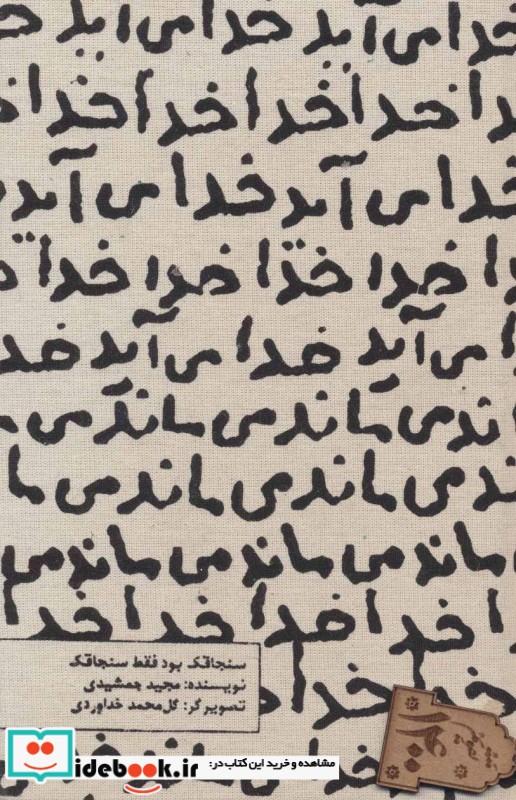 خدا می آید خدا می آید
خدا خدا خدا خدا خدا
خدا می آید خدا می آید
خدا خدا خدا خدا
می آید خدا می آید خدا
ماندمی ماندمی ماندمی
ماندمی ماندمی ماندمی ما
ماندمی ماندمی ماندمی
خدا خدا خدا خدا
سنجاقک بود فقط سنجاقک
نویسنده: مجید جمشیدی
تصویرگر: گل محمد خداوردی
مشاهده و خرید این کتاب در:
idebook.ir